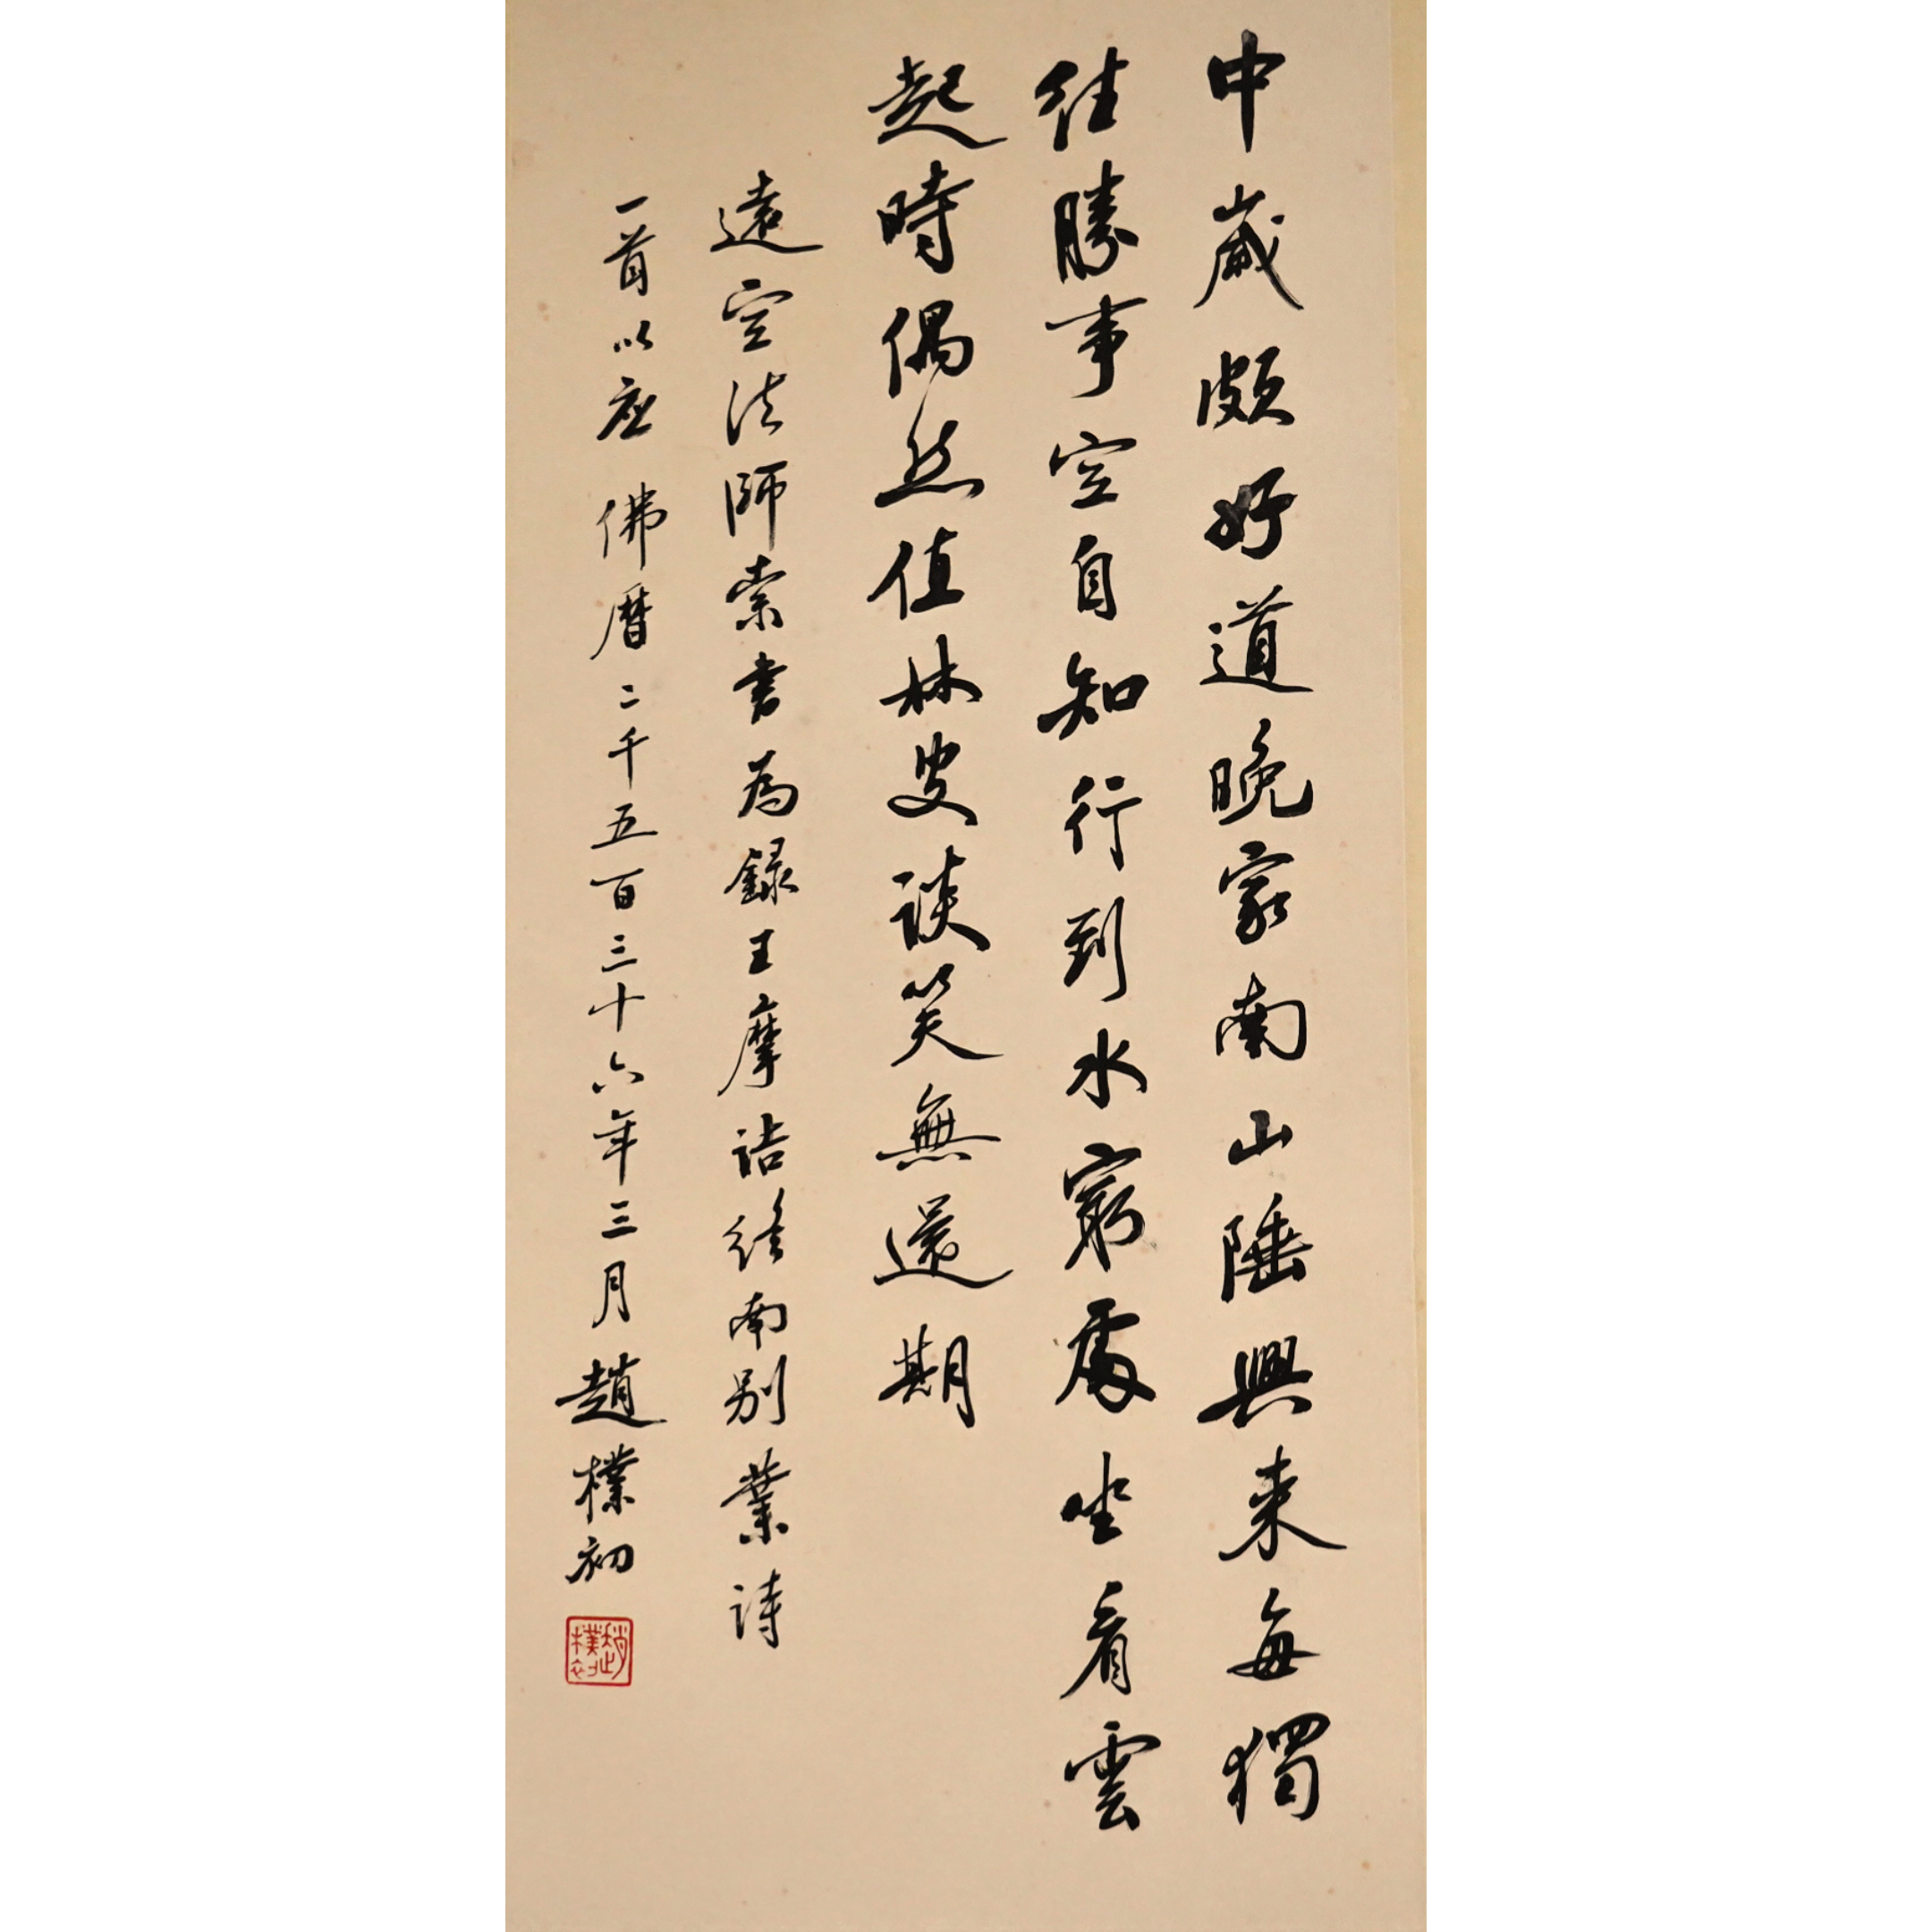 中歲頗好道晚家南山陲興來每獨
往勝事空自知行到水窮處坐看雲
起時偶然值林叟談笑無還期
遠空法師索書為錄王摩詰終南別業詩
一首以應 佛曆二千五百三十六年三月 趙樸初
趙樸初